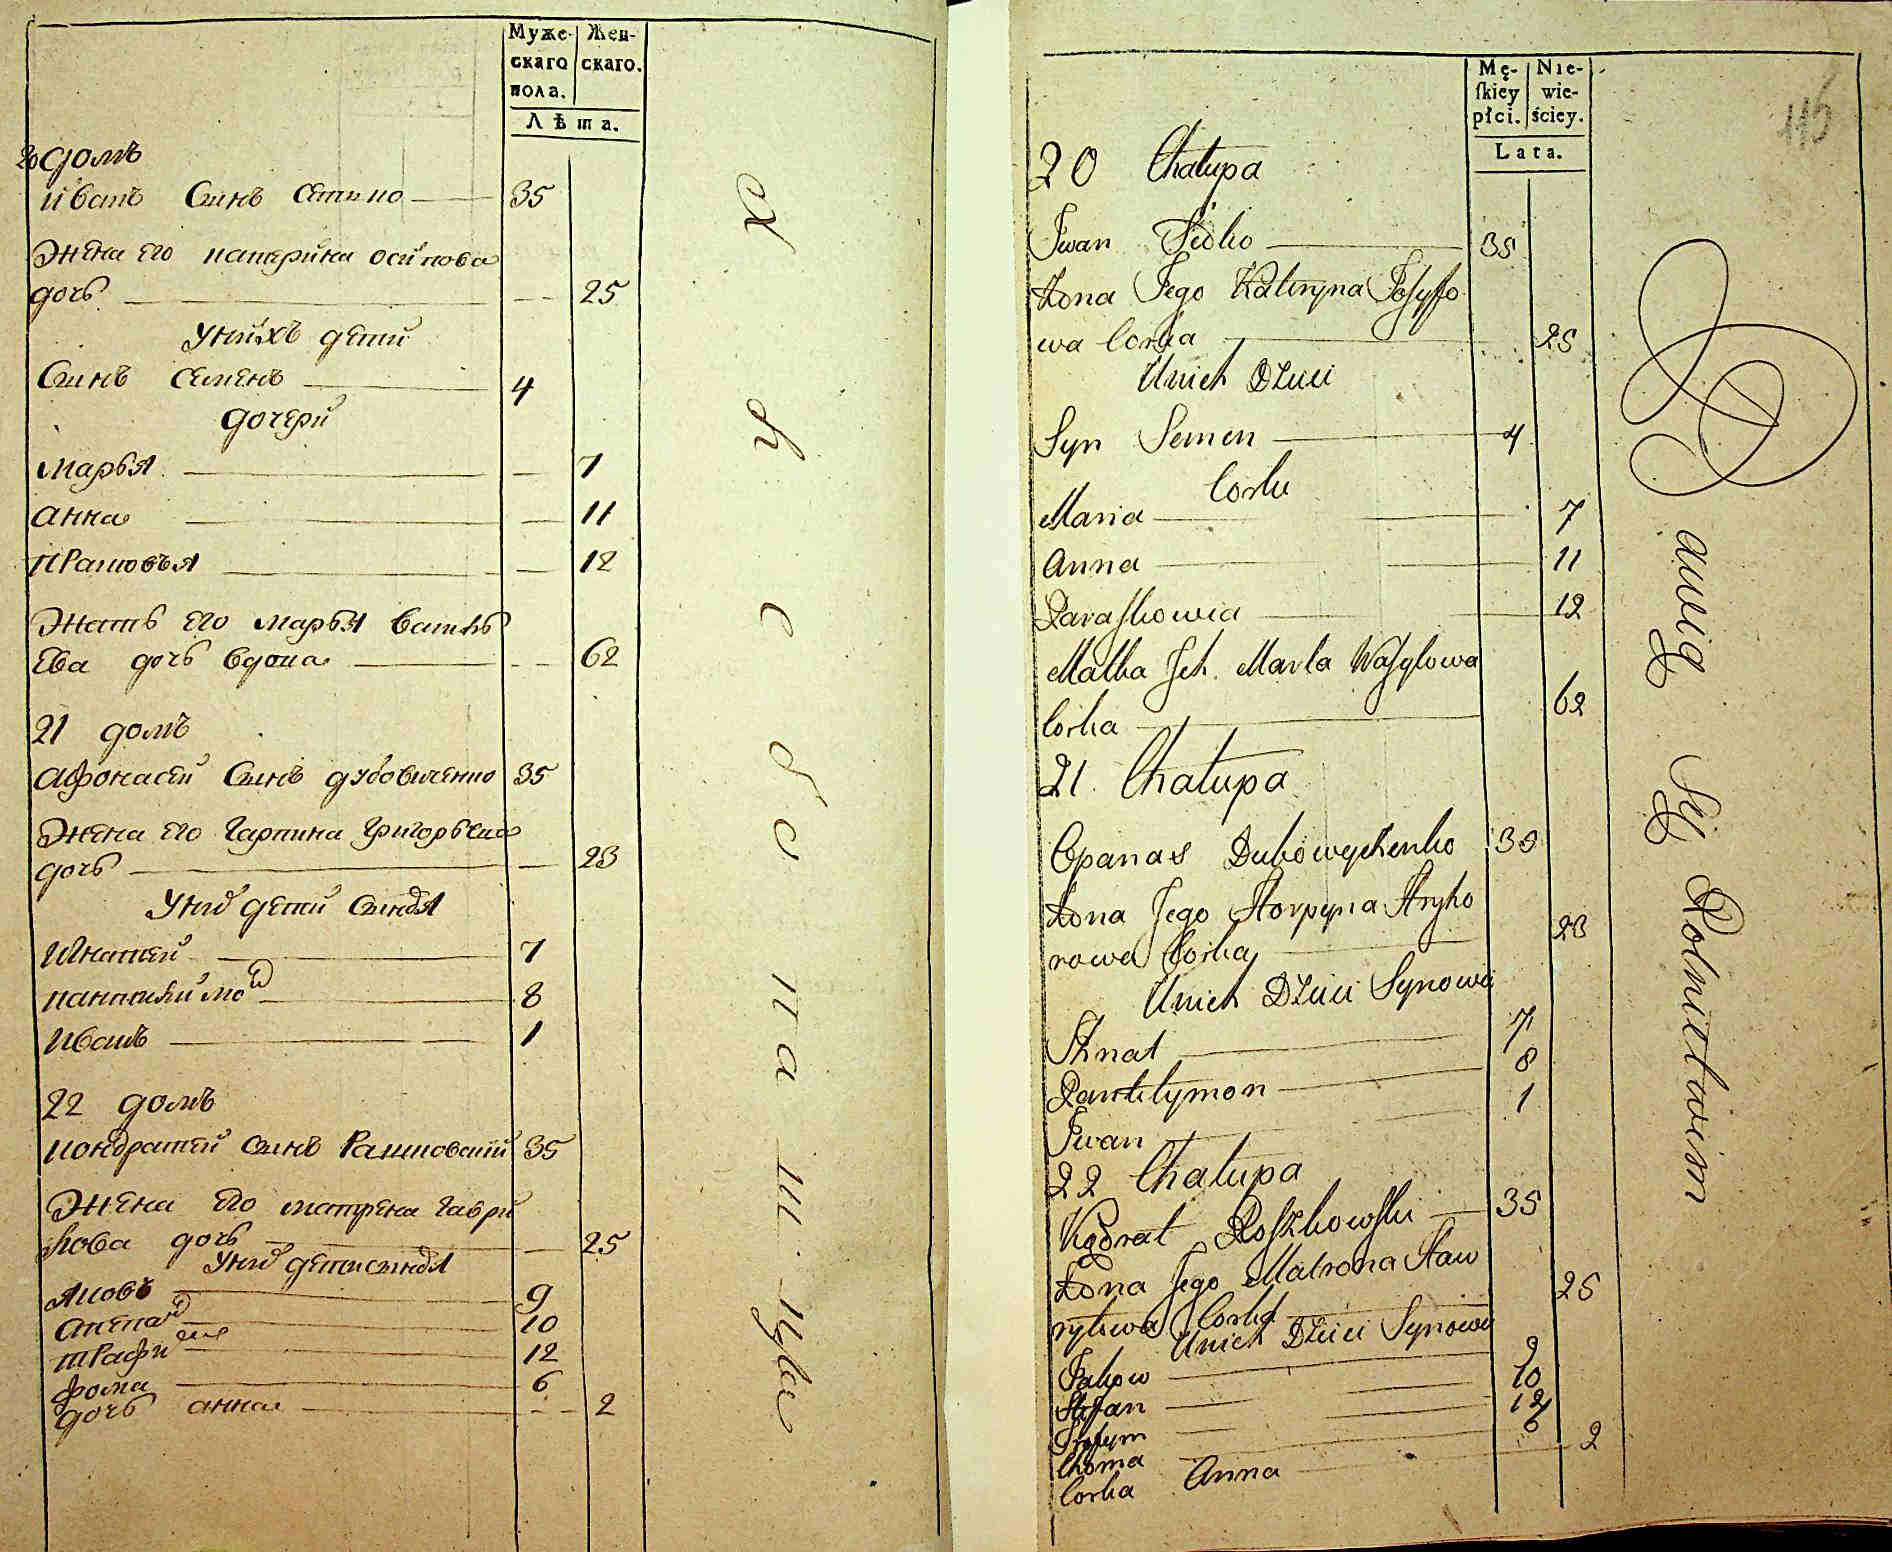 Муже-
скаго
пола.
Жен-
скаго.
Лѣта.
20 домъ
Иванъ Синъ Сѣтько 35
Жена его катерина осипова
дочь 25
У нихъ дети
Синъ семенъ 4
дочери
Марья 7
Анна 11
Прасковья 12
Мать его марья василь
ева дочь вдова 62
21 домъ
Афонасей Синъ дубовиченко 35
Жена его Гарпина Григорьева
дочь 23
У нид дети сындя
Игнатей 7
пантилимо 8
Иванъ 1
22 домъ
Кондратей синъ Рашковский 35
Жена его матрена гаври
лова дочь 25
У нид дети сындя
Яковъ 9
Степан 10
Трафи 12
фома 6
дочь анна 2
Mę-
ſkiey
płci.
Nie-
wie-
ściey.
Lata.
115
20 Chałupa
Jwan Sidko 35
Żona Jego Kateryna Josyfo
wa Corka 25
Unich Dzieci
Syn Semen 4
Corki
Maria 7
Anna 11
Paraſkowia 12
Matka Jch Marta Waſylowa
Corka 62
21 Chałupa
Opanas Dubowyczenko 35
Żona Jego Horpyna Hryho
rowa Corka 23
Unich Dzieci Synowie
Ihnat 7
Pantelymon 8
Jwan 1
22 Chałupa
Kodrat Roſzkowſki 35
Żona Jego Matrona Haw
ryłowa Corka 25
Unich Dzieci Synowie
Jakow 9
Stefan 10
Trofym 12
Choma 6
Corka Anna 2